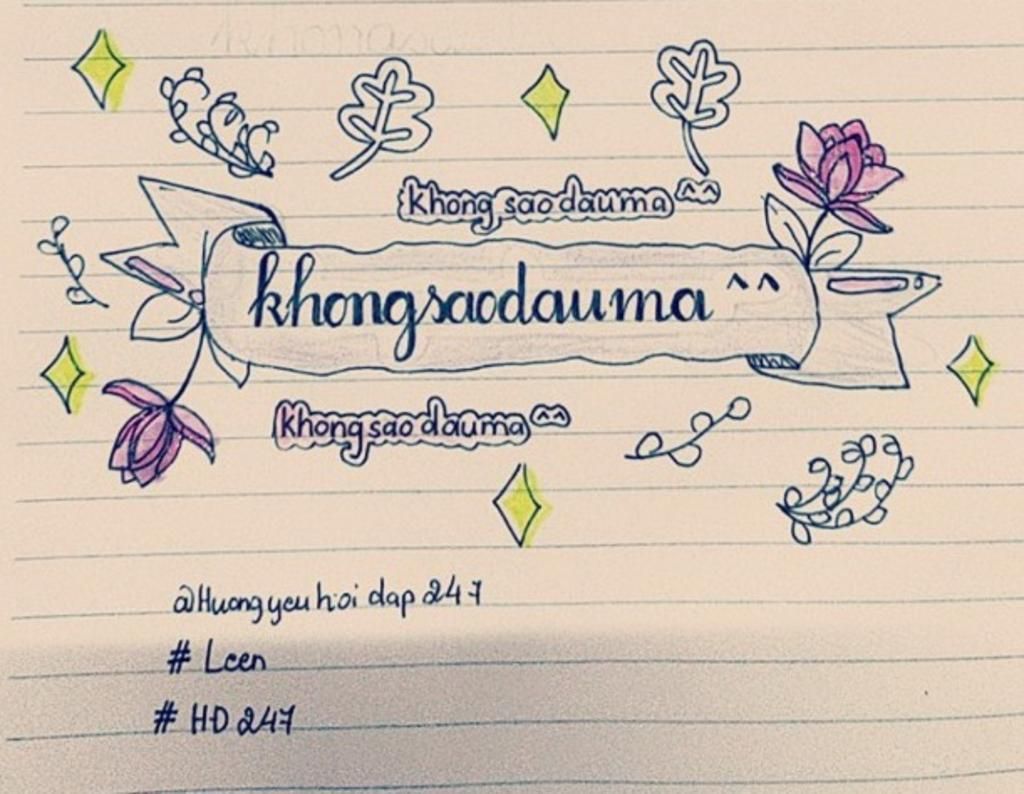 khongsaodauma ^^
khongsaodauma ^^
khongsaodauma ^^
@Huongyeuhoidap247
# Leen
# HD247